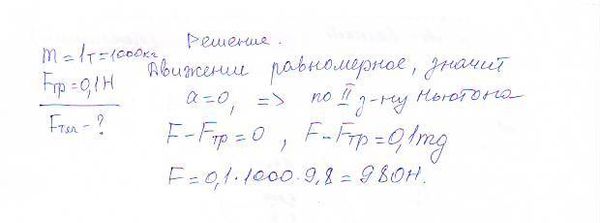 Решение.
m = 1т = 1000кг
Fтр = 0,1Н
Fтяг - ?
Движение равномерное, значит
a = 0, => по II з-ну Ньютона
F - Fтр = 0 , F - Fтр = 0,1mg
F = 0,1 · 1000 · 9,8 = 980Н.